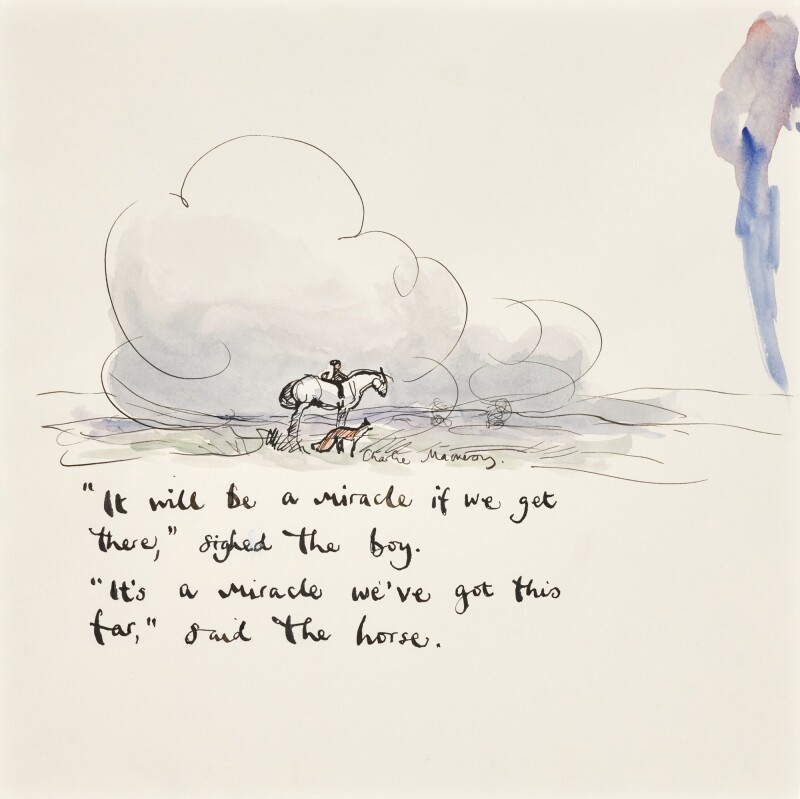 Charlie Mackesy.
"It will be a miracle if we get
there," sighed the boy.
"It's a miracle we've got this
far," said the horse.